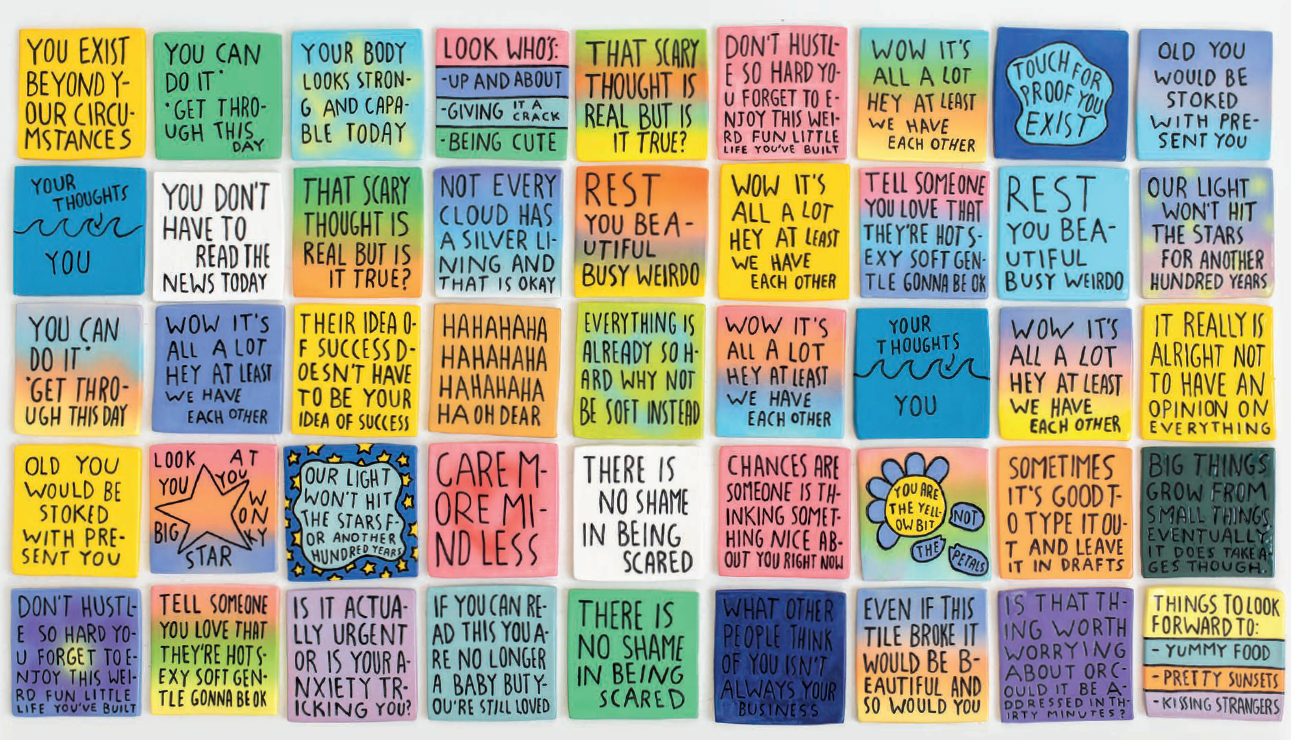 YOU EXIST
BEYOND Y-
OUR CIRCU-
MSTANCES
YOU CAN
DO IT*
*GET THRO-
UGH THIS
DAY
YOUR BODY
LOOKS STRON-
G AND CAPA-
BLE TODAY
LOOK WHO'S:
-UP AND ABOUT
-GIVING IT A CRACK
-BEING CUTE
THAT SCARY
THOUGHT IS
REAL BUT IS
IT TRUE?
DON'T HUSTL-
E SO HARD YO-
U FORGET TO E-
NJOY THIS WEI-
RD FUN LITTLE
LIFE YOU'VE BUILT
WOW IT'S
ALL A LOT
HEY AT LEAST
WE HAVE
EACH OTHER
TOUCH FOR
PROOF YOU
EXIST
OLD YOU
WOULD BE
STOKED
WITH PRE-
SENT YOU
YOUR
THOUGHTS
YOU
YOU DON'T
HAVE TO
READ THE
NEWS TODAY
THAT SCARY
THOUGHT IS
REAL BUT IS
IT TRUE?
NOT EVERY
CLOUD HAS
A SILVER LI-
NING AND
THAT IS OKAY
REST
YOU BEA-
UTIFUL
BUSY WEIRDO
WOW IT'S
ALL A LOT
HEY AT LEAST
WE HAVE
EACH OTHER
TELL SOMEONE
YOU LOVE THAT
THEY'RE HOT S-
EXY SOFT GEN-
TLE GONNA BE OK
REST
YOU BEA-
UTIFUL
BUSY WEIRDO
OUR LIGHT
WON'T HIT
THE STARS
FOR ANOTHER
HUNDRED YEARS
YOU CAN
DO IT*
*GET THRO-
UGH THIS DAY
WOW IT'S
ALL A LOT
HEY AT LEAST
WE HAVE
EACH OTHER
THEIR IDEA O-
F SUCCESS D-
OESN'T HAVE
TO BE YOUR
IDEA OF SUCCESS
HAHAHAHA
HAHAHAHA
HAHAHAHA
HA OH DEAR
EVERYTHING IS
ALREADY SO H-
ARD WHY NOT
BE SOFT INSTEAD
WOW IT'S
ALL A LOT
HEY AT LEAST
WE HAVE
EACH OTHER
YOUR
THOUGHTS
YOU
WOW IT'S
ALL A LOT
HEY AT LEAST
WE HAVE
EACH OTHER
IT REALLY IS
ALRIGHT NOT
TO HAVE AN
OPINION ON
EVERYTHING
OLD YOU
WOULD BE
STOKED
WITH PRE-
SENT YOU
LOOK AT
YOU YOU
BIG WONKY
STAR
OUR LIGHT
WON'T HIT
THE STARS F-
OR ANOTHER
HUNDRED YEARS
CARE M-
ORE MI-
ND LESS
THERE IS
NO SHAME
IN BEING
SCARED
CHANCES ARE
SOMEONE IS TH-
INKING SOMET-
HING NICE AB-
OUT YOU RIGHT NOW
YOU ARE
THE YELL-
OW BIT
NOT
THE
PETALS
SOMETIMES
IT'S GOOD T-
O TYPE IT OU-
T AND LEAVE
IT IN DRAFTS
BIG THINGS
GROW FROM
SMALL THINGS
EVENTUALLY
IT DOES TAKE A-
GES THOUGH.
DON'T HUSTL-
E SO HARD YO-
U FORGET TO E-
NJOY THIS WEI-
RD FUN LITTLE
LIFE YOU'VE BUILT
TELL SOMEONE
YOU LOVE THAT
THEY'RE HOT S-
EXY SOFT GEN-
TLE GONNA BE OK
IS IT ACTUA-
LLY URGENT
OR IS YOUR A-
NXIETY TR-
ICKING YOU?
IF YOU CAN RE-
AD THIS YOU A-
RE NO LONGER
A BABY BUT Y-
OU'RE STILL LOVED
THERE IS
NO SHAME
IN BEING
SCARED
WHAT OTHER
PEOPLE THINK
OF YOU ISN'T
ALWAYS YOUR
BUSINESS
EVEN IF THIS
TILE BROKE IT
WOULD BE B-
EAUTIFUL AND
SO WOULD YOU
IS THAT TH-
ING WORTH
WORRYING
ABOUT OR C-
OULD IT BE A-
DDRESSED IN TH-
IRTY MINUTES?
THINGS TO LOOK
FORWARD TO:
- YUMMY FOOD
- PRETTY SUNSETS
- KISSING STRANGERS